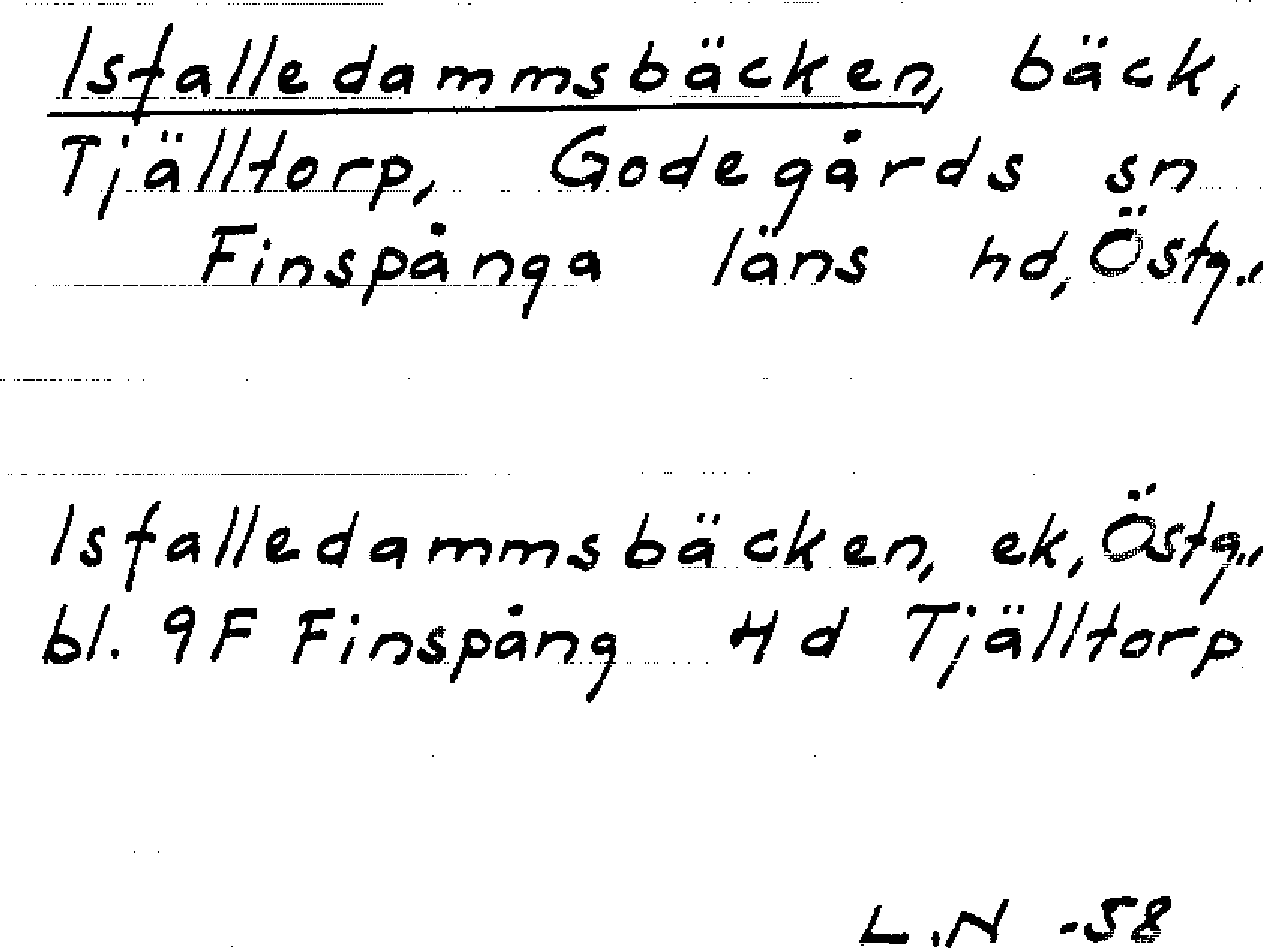 Isfalledammsbäcken, bäck,
Tjälltorp, Godegårds sn
Finspånga läns hd, Östg..
Isfalledammsbäcken, ek, Östg..
bl. 9F Finspång 4d Tjälltorp
L.N -58